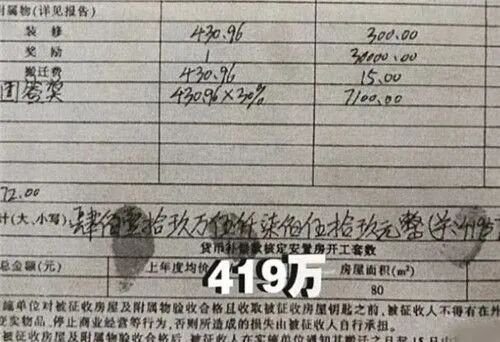 附属物(详见报告)
装修 430.96 300.00
奖励 1 30000.00
搬迁费 430.96 15.00
团签奖 430.96×30% 7100.00
72.00
计(大、小写) 肆佰壹拾玖万伍仟柒佰伍拾玖元整
货币补偿款核定安置房开工套数
总金额(元) 上年度均价 房屋面积(m²)
419万 80
施单位对被征收房屋及附属物验收合格且收取被征收房屋钥匙之前,被征收人不得有在外
变卖物品,停止商业经营等行为,否则所造成的损失由被征收人自行承担。
被征收房屋及附属物验收合格后,被征收人在实施单位通知其搬迁之日起15日内